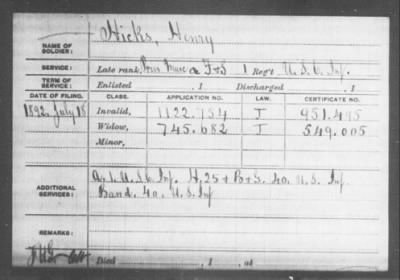 Hicks, Henry
NAME OF SOLDIER:
SERVICE: Late rank, Prin. Musc. F+S 1 Reg't U.S.C. Inf.
TERM OF SERVICE: Enlisted , 1 Discharged , 1
DATE OF FILING. CLASS. APPLICATION NO. LAW. CERTIFICATE NO.
1892, July 18 Invalid, 1122.754 J 951.495
Widow, 745.682 J 549.005
Minor,
ADDITIONAL SERVICES: U.S.C. Inf. H, 25 + B+S. 40. U.S. Inf.
Band. 40. U.S. Inf
REMARKS:
Died , 1 , at